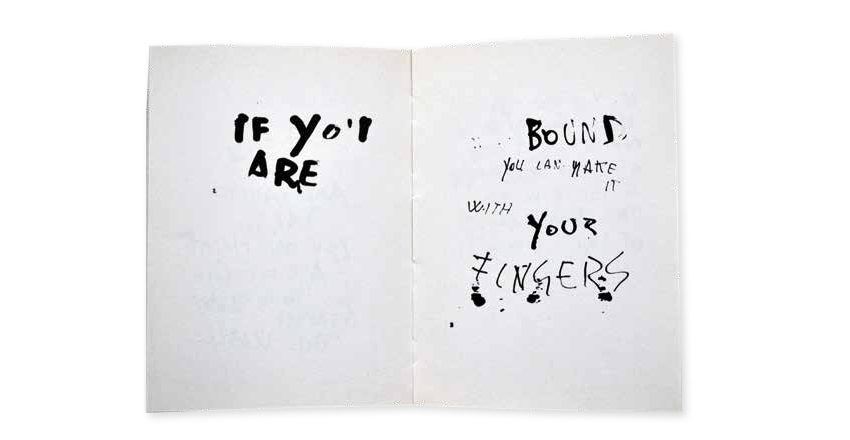 IF YO'I
ARE
BOUND
YOU CAN MAKE
IT
WITH
YOUR
FINGERS